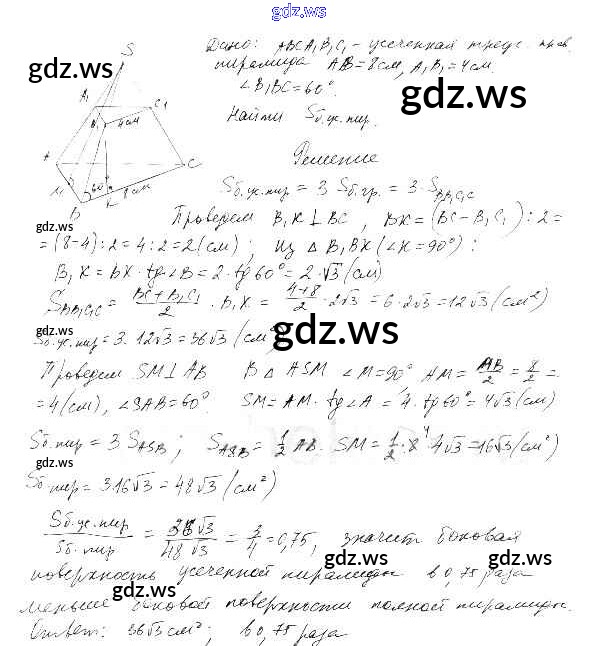 gdz.ws
Дано: ABCA₁B₁C₁ - усеченная треуг. прав.
пирамида AB = 8 см, A₁B₁ = 4 см.
∠B₁BC = 60°.
Найти Sб.ус.пир.
gdz.ws
gdz.ws
S
A₁
C₁
B₁
4 см
A
C
M
60°
8 см
B
K
Решение
Sб.ус.пир = 3 Sб.гр. = 3 · S_BB₁C₁C
Проведем B₁K ⊥ BC, BK = (BC - B₁C₁) : 2 =
gdz.ws
= (8-4) : 2 = 4 : 2 = 2 (см); Из △ B₁BK (∠K = 90°):
B₁K = BK · tg∠B = 2 · tg60° = 2 · √3 (см)
S_BB₁C₁C = (BC + B₁C₁)/2 · B₁K = (4+8)/2 · 2√3 = 6 · 2√3 = 12√3 (см²)
Sб.ус.пир = 3 · 12√3 = 36√3 (см²)
gdz.ws
Проведем SM ⊥ AB В △ ASM ∠M = 90°, AM = AB/2 = 8/2 =
= 4 (см), ∠SAB = 60°. SM = AM · tg∠A = 4 · tg60° = 4√3 (см)
Sб.пир = 3 S_ASB; S_ASB = 1/2 AB · SM = 1/2 · 8 · 4√3 = 16√3 (см²)
gdz.ws
Sб.пир = 3 · 16√3 = 48√3 (см²)
Sб.ус.пир/Sб.пир = 36√3/48√3 = 3/4 = 0,75, значит боковая
gdz.ws
поверхность усеченной пирамиды в 0,75 раза
меньше боковой поверхности полной пирамиды.
gdz.ws
Ответ: 36√3 см²; в 0,75 раза
gdz.ws